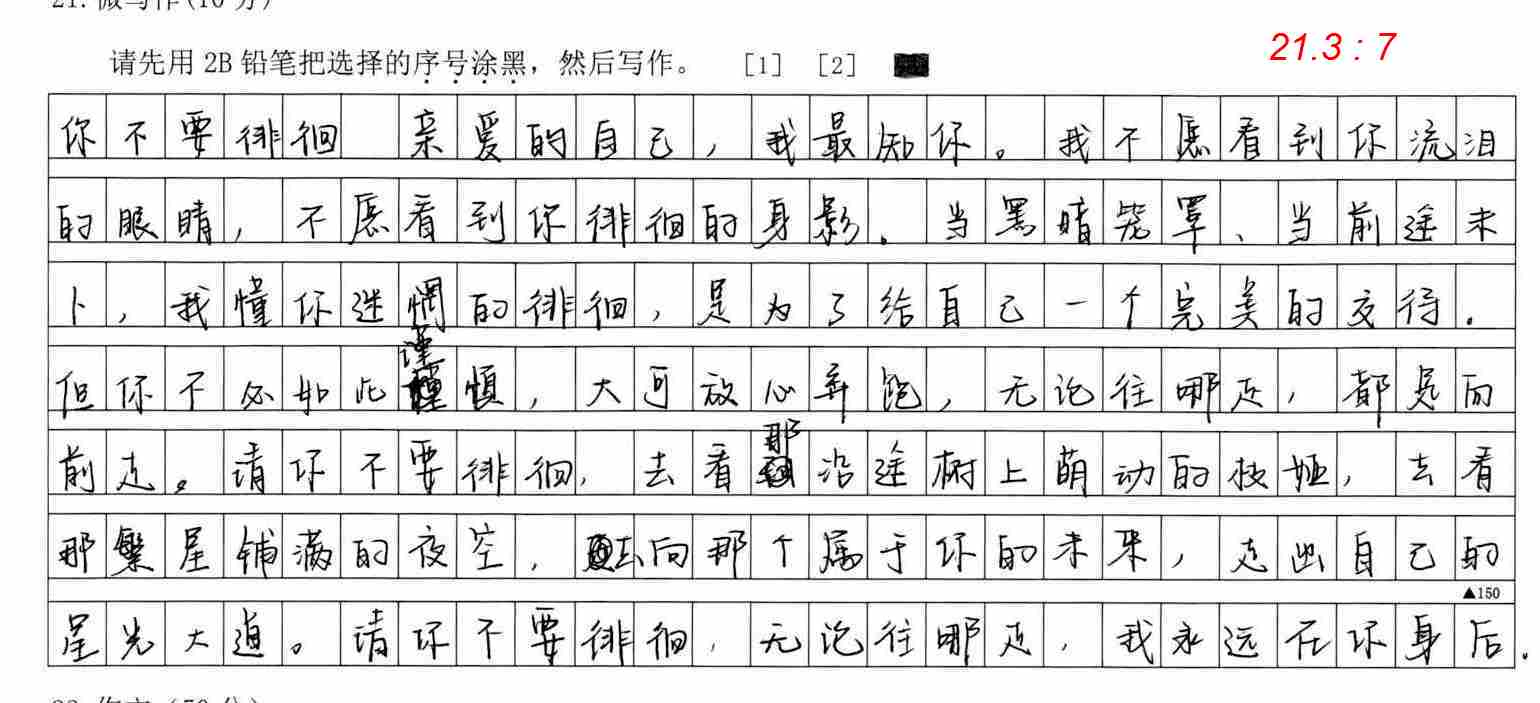 21. 微写作(10 分)
请先用 2B 铅笔把选择的序号涂黑，然后写作。 [1] [2]
21.3 : 7
你不要徘徊 亲爱的自己，我最知你。我不愿看到你流泪
的眼睛，不愿看到你徘徊的身影。当黑暗笼罩、当前途未
卜，我懂你迷惘的徘徊，是为了给自己一个完美的交待。
但你不必如此谨慎，大可放心奔跑，无论往哪走，都是向
前走。请你不要徘徊，去看那沿途树上萌动的枝桠，去看
那繁星铺满的夜空，去向那个属于你的未来，走出自己的
▲150
星光大道。请你不要徘徊，无论往哪走，我永远在你身后。